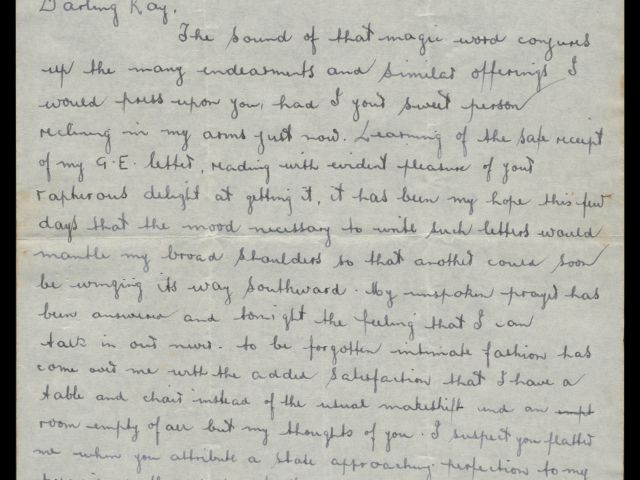 Darling Kay,
The sound of that magic word conjures
up the many endearments and similar offerings I
would press upon you, had I your sweet person
reclining in my arms just now. Learning of the safe receipt
of my G.E. letter, reading with evident pleasure of your
rapturous delight at getting it, it has been my hope this few
days that the mood necessary to write such letters would
mantle my broad shoulders so that another could soon
be winging its way southward. My unspoken prayer has
been answered and tonight the feeling that I can
talk in our never-to be forgotten intimate fashion has
come over me with the added satisfaction that I have a
table and chair instead of the usual makeshift and an
room empty of all but my thoughts of you. I suspect you flatter
me when you attribute a state approaching perfection to my